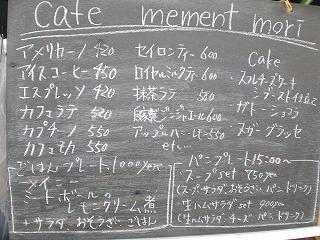 cafe mement mori
アメリカーノ 420
アイスコーヒー 450
エスプレッソ 420
カフェラテ 520
カプチーノ 550
カフェモカ 550
セイロンティー 600
ロイヤルミルクティー 600
抹茶ラテ 580
自家製ジンジャエール 600
アップルハニービネガー 550
etc...
Cake
スフレチーズケーキ
シブースト仕立て
ガトーショコラ
マロングラッセ
ごはんプレート 1,000yen
メイン
ミートボールの
レモンクリーム煮
+サラダ おそうざい ごはん
パニープレート 15:00〜
スープ set 750yen
(スープ サラダ おそうざい パン ドリンク)
生ハムサラダ set 900yen
(生ハムサラダ チーズ パン ドリンク)